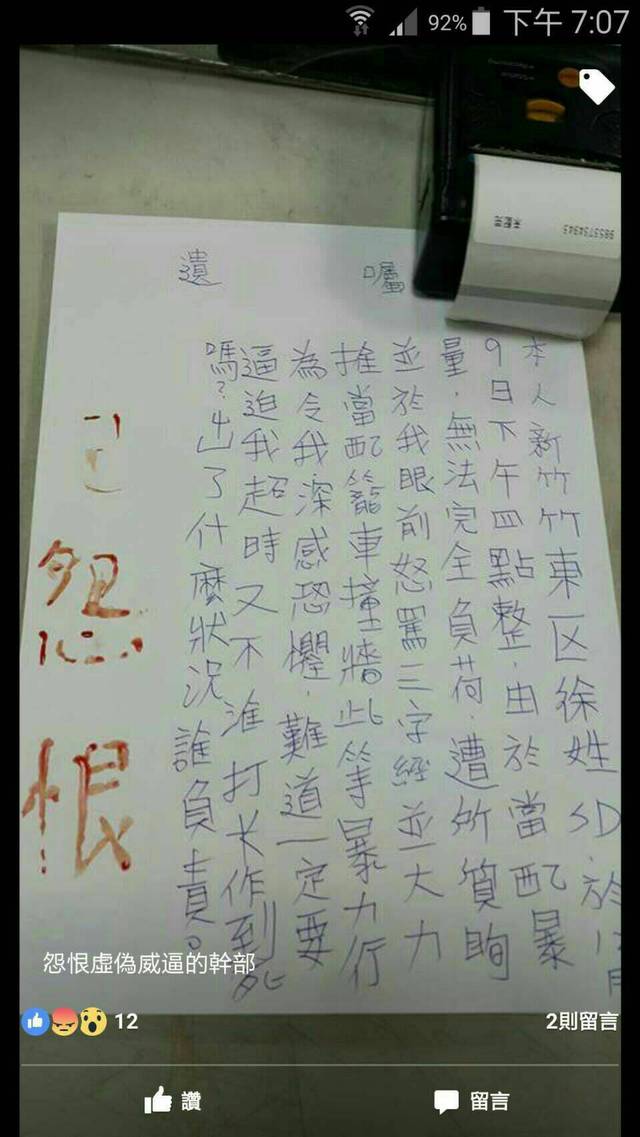 92% 下午 7:07
遺囑
本人新竹竹東区徐姓SD.於12月
9日下午四點整,由於當配暴
量,無法完全負荷,遭所質眴
並於我眼前怒罵三字經並大力
推當配籠車撞牆此等暴力行
為令我深感恐懼,難道一定要
逼迫我超時又不准打卡作到死
嗎?出了什麼狀況誰負責。
怨恨
怨恨虛偽威逼的幹部
12
2則留言
讚
留言